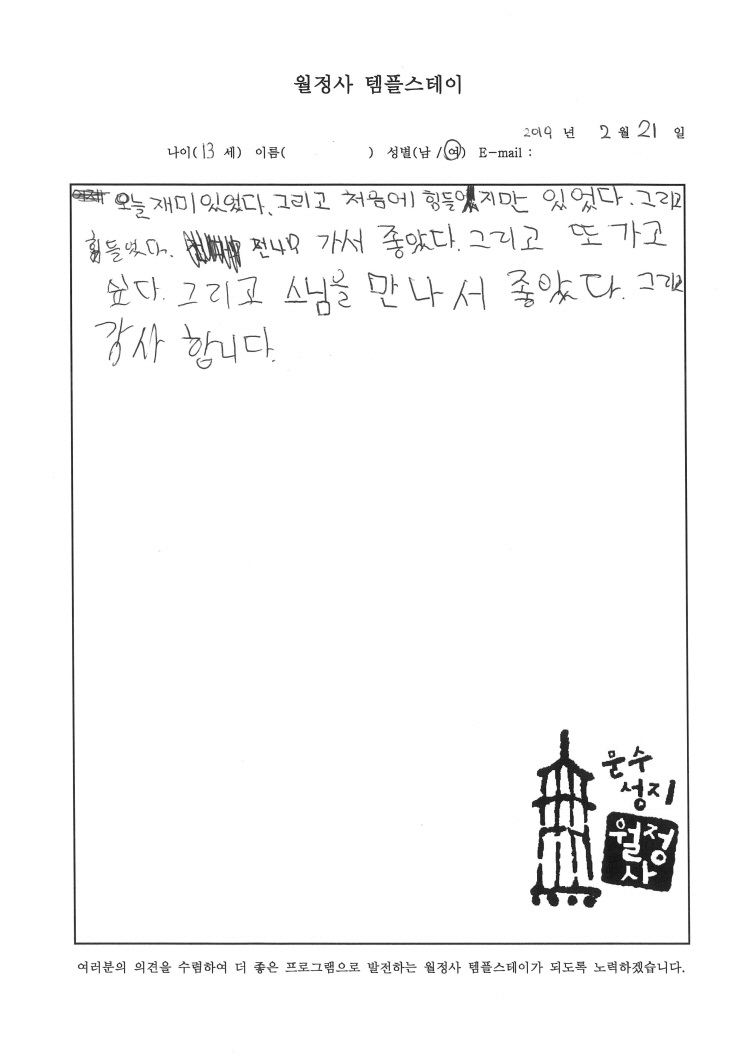 월정사 템플스테이
2019 년 2 월 21 일
나이( 13 세) 이름( ) 성별(남 / 여) E-mail :
오늘 재미있었다. 그리고 처음에 힘들었지만 있었다. 그리고
힘들었다. 가서 좋았다. 그리고 또 가고
싶다. 그리고 스님을 만나서 좋았다. 그리고
감사 합니다.
문수
성지
월정
사
여러분의 의견을 수렴하여 더 좋은 프로그램으로 발전하는 월정사 템플스테이가 되도록 노력하겠습니다.